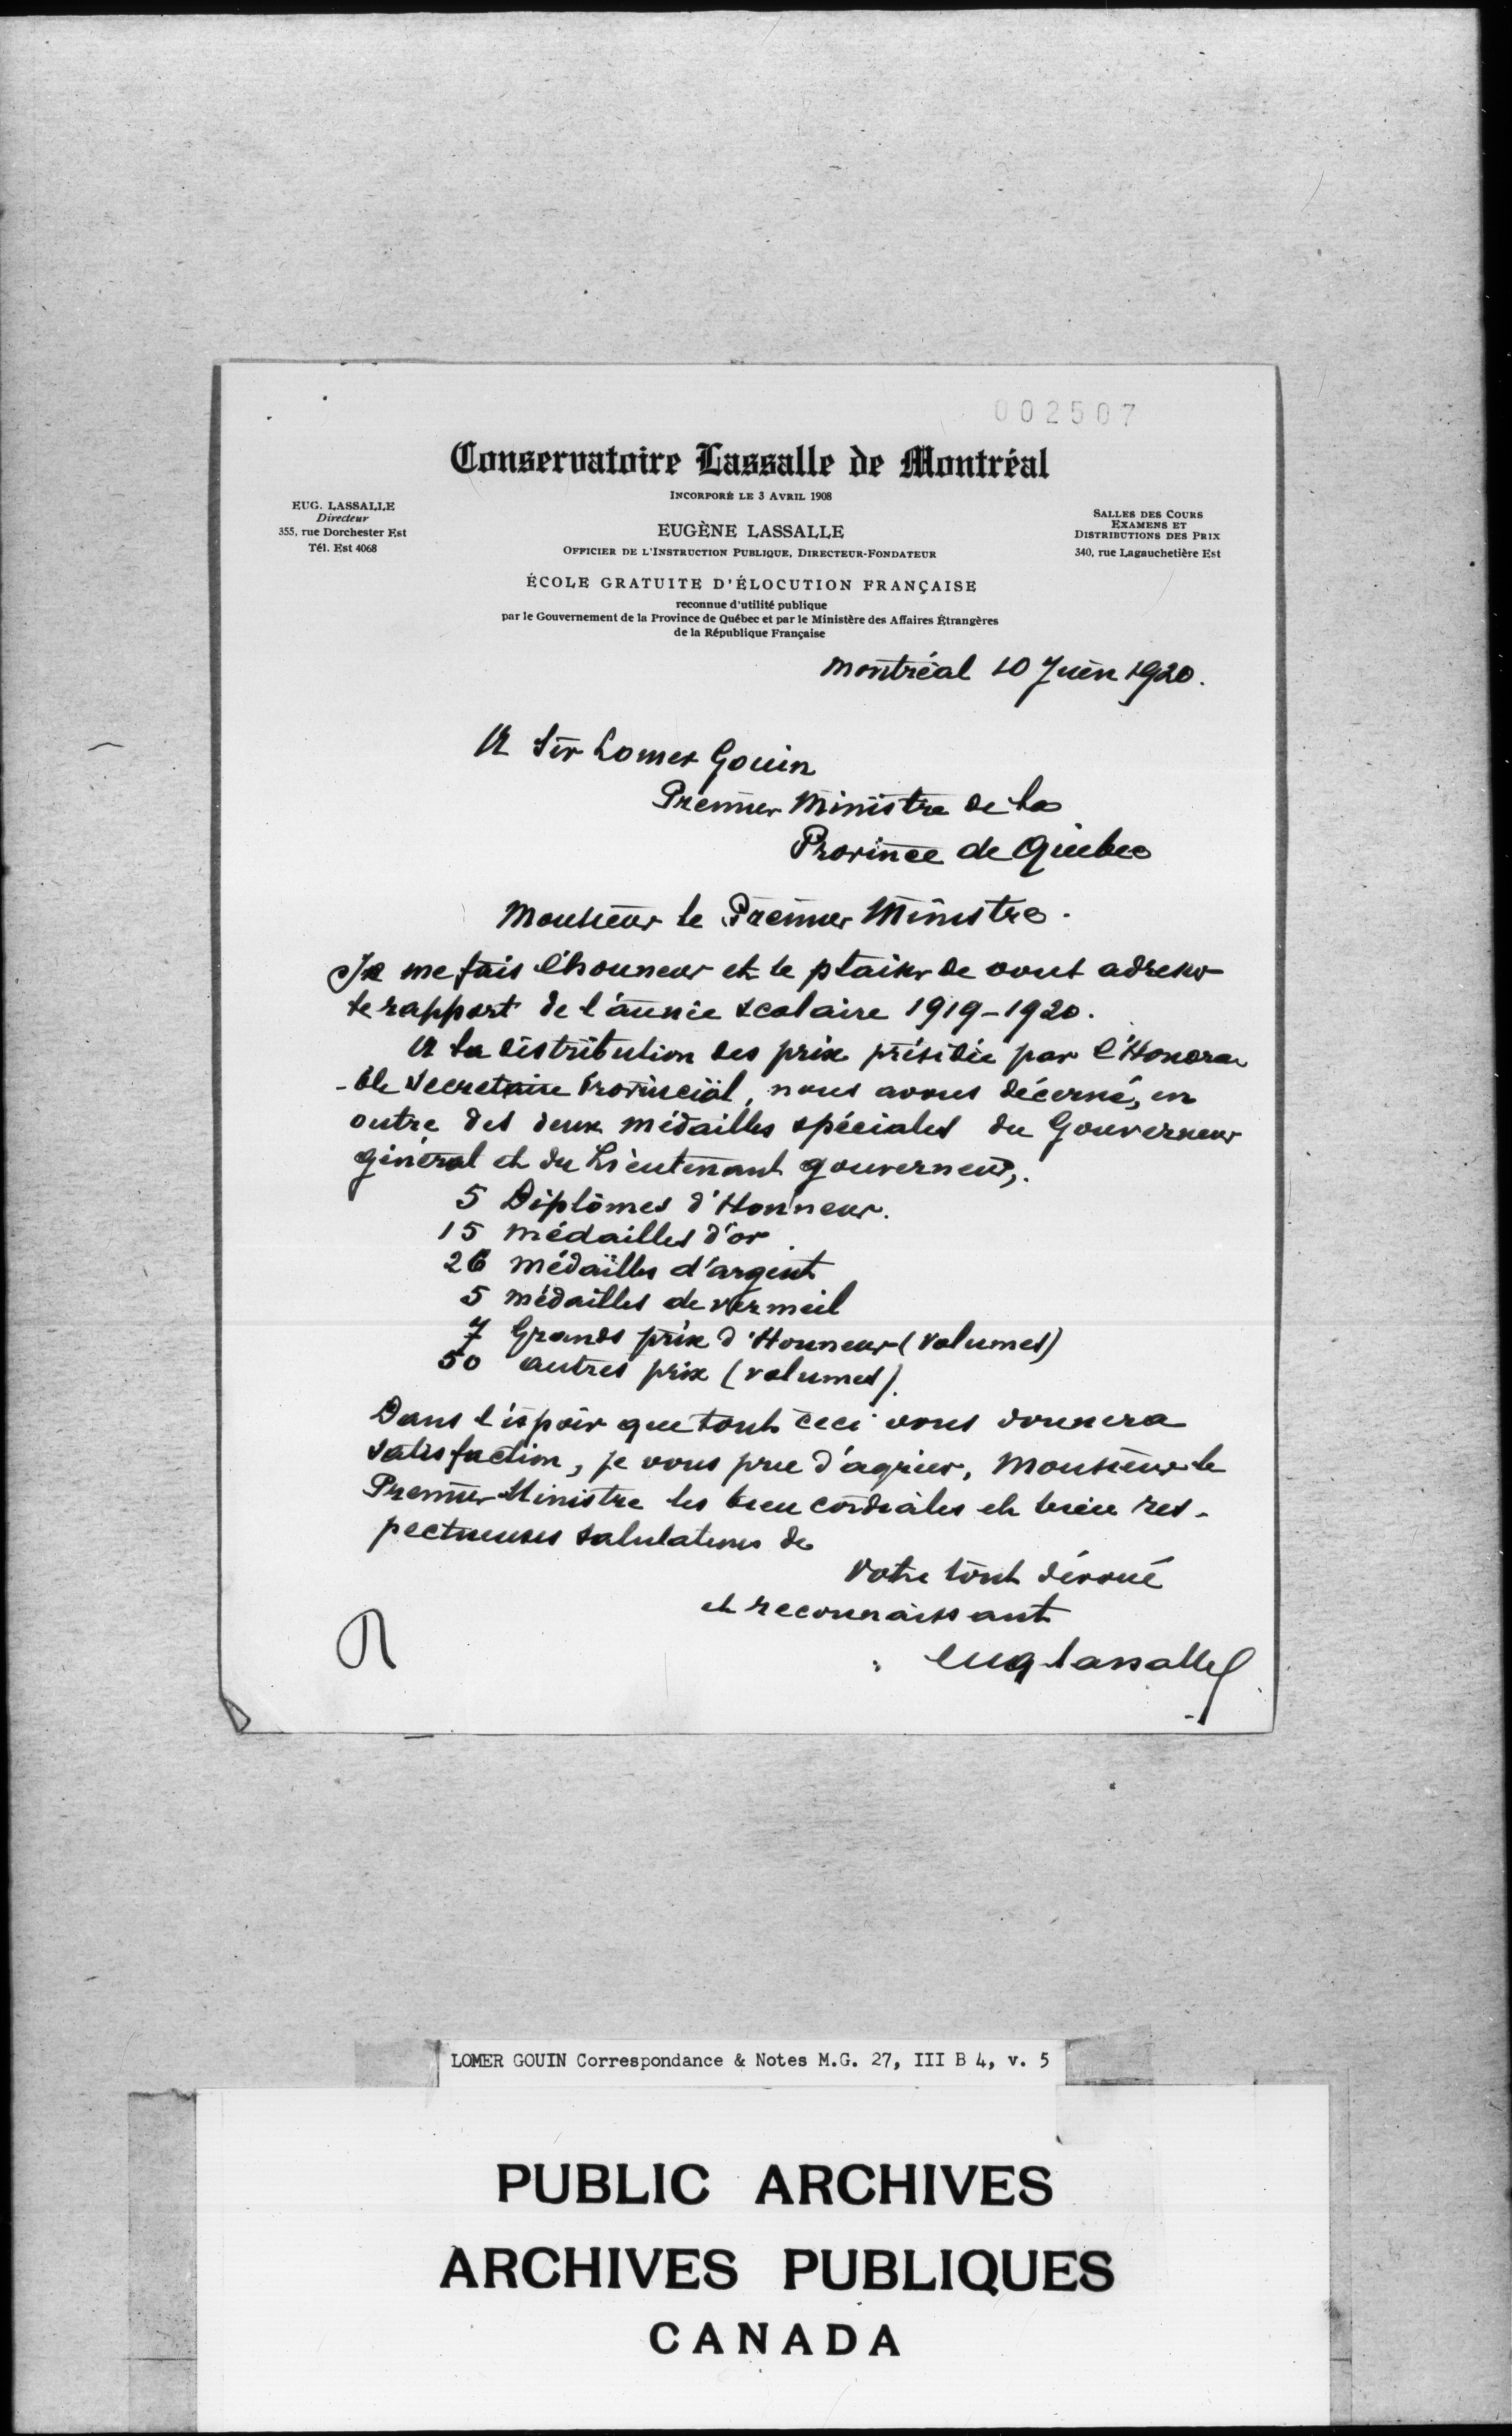 002507
Conservatoire Lassalle de Montréal
INCORPORÉ LE 3 AVRIL 1908
EUG. LASSALLE
Directeur
355, rue Dorchester Est
Tél. Est 4068
EUGÈNE LASSALLE
OFFICIER DE L'INSTRUCTION PUBLIQUE, DIRECTEUR-FONDATEUR
SALLES DES COURS
EXAMENS ET
DISTRIBUTIONS DES PRIX
340, rue Lagauchetière Est
ÉCOLE GRATUITE D'ÉLOCUTION FRANÇAISE
reconnue d'utilité publique
par le Gouvernement de la Province de Québec et par le Ministère des Affaires Étrangères
de la République Française
Montréal 10 Juin 1920.
A Sir Lomer Gouin
Premier Ministre de la
Province de Québec
Monsieur le Premier Ministre.
Je me fais l'honneur et le plaisir de vous adresser
le rapport de l'année scolaire 1919-1920.
A la distribution des prix présidée par l'Honora
-ble Secretaire Provincial, nous avons décerné, en
outre des deux médailles spéciales du Gouverneur
général et du Lieutenant gouverneur,.
5 Diplômes d'Honneur.
15 médailles d'or
26 médailles d'argent
5 médailles de vermeil
7 Grands prix d'Honneur (volumes)
50 autres prix (volumes).
Dans l'espoir que tout ceci vous donnera
satisfaction, je vous prie d'agréer, Monsieur le
Premier Ministre les bien cordiales et bien res-
pectueuses salutations de
Votre tout dévoué
et reconnaissant
Eug Lassalle
LOMER GOUIN Correspondance & Notes M.G. 27, III B 4, v. 5
PUBLIC ARCHIVES
ARCHIVES PUBLIQUES
CANADA